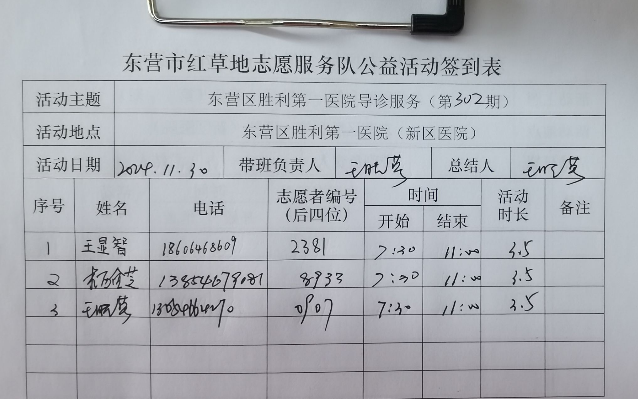 东营市红草地志愿服务队公益活动签到表
活动主题 东营区胜利第一医院导诊服务（第302期）
活动地点 东营区胜利第一医院（新区医院）
活动日期 2024.11.30 带班负责人 总结人
序号 姓名 电话 志愿者编号（后四位） 时间 开始 结束 活动时长 备注
1 王显智 18606468609 2381 7:30 11:00 3.5
2 8933 7:30 11:00 3.5
3 0907 7:30 11:00 3.5